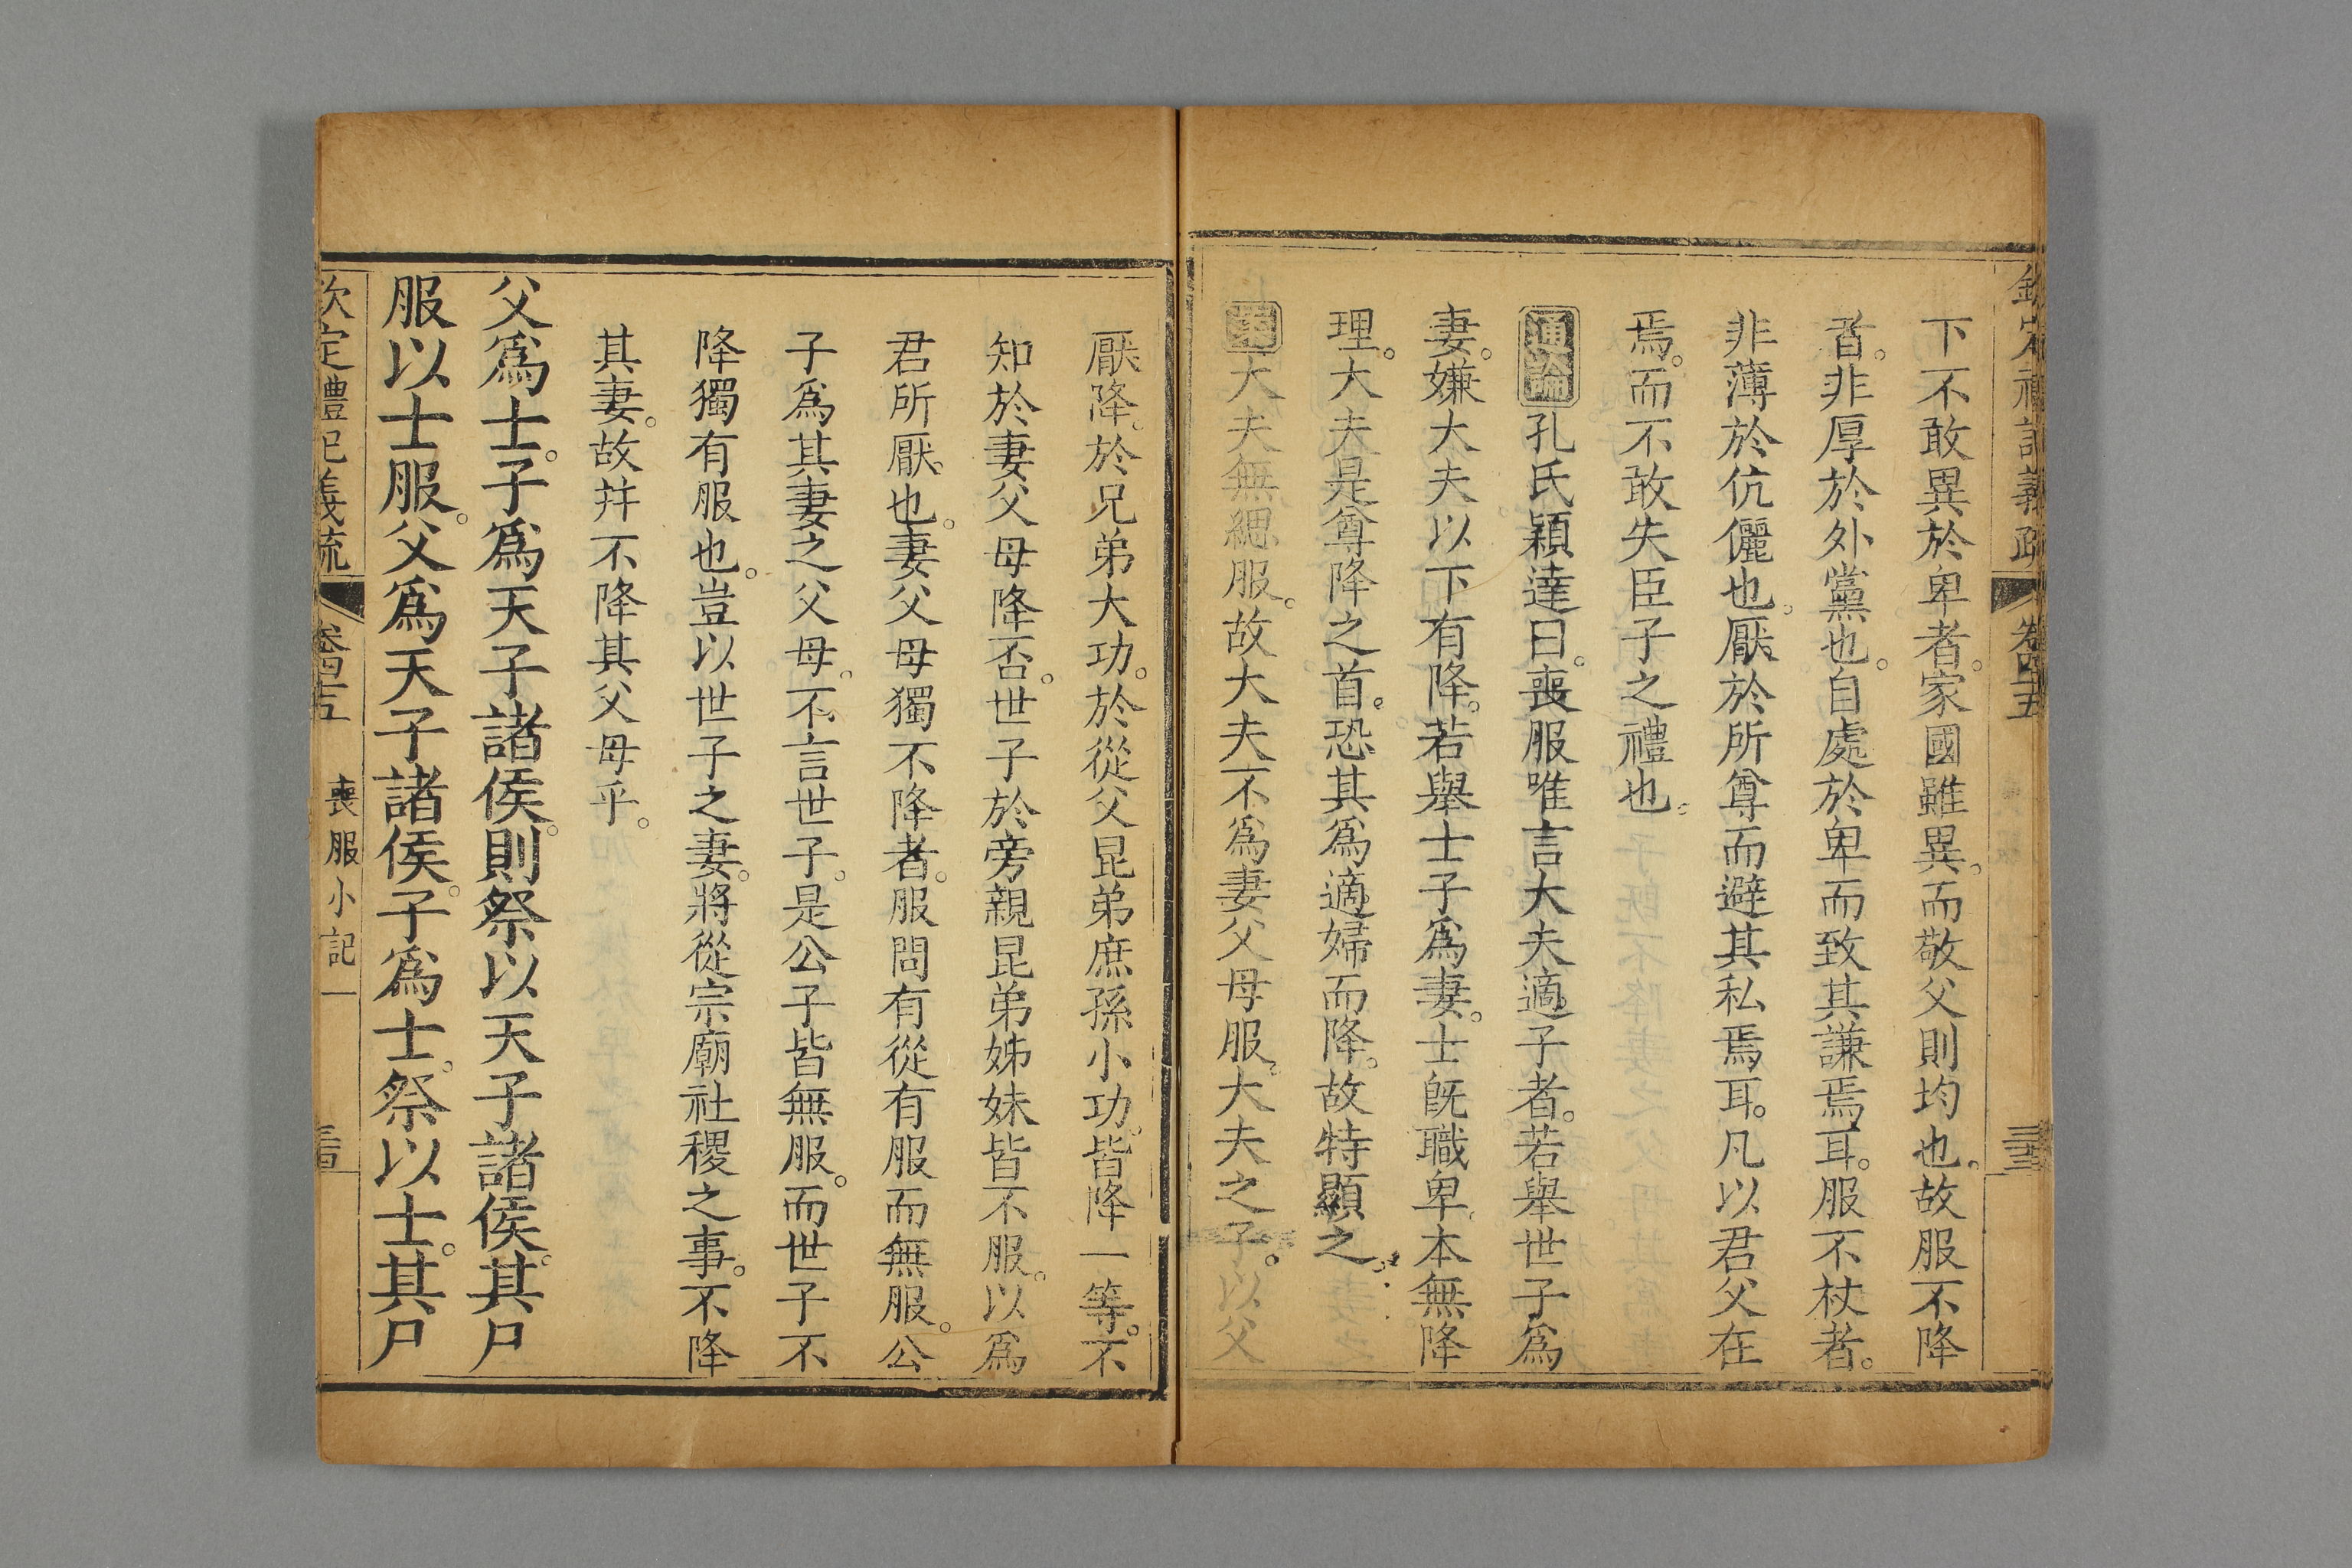 欽定禮記義疏 卷四十五
下不敢異於卑者。家國雖異。而敬父則均也。故服不降
者。非厚於外黨也。自處於卑而致其謙焉耳。服不杖者。
非薄於伉儷也。厭於所尊而避其私焉耳。凡以君父在
焉。而不敢失臣子之禮也。
通論孔氏穎達曰。喪服唯言大夫適子者。若舉世子爲
妻。嫌大夫以下有降。若舉士子爲妻。士旣職卑本無降
理。大夫是尊降之首。恐其爲適婦而降。故特顯之。
大夫無緦服。故大夫不爲妻父母服。大夫之子。以父
厭降。於兄弟大功。於從父昆弟庶孫小功。皆降一等。不
知於妻父母降否。世子於旁親昆弟姊妹皆不服。以爲
君所厭也。妻父母獨不降者。服問有從有服而無服。公
子爲其妻之父母。不言世子。是公子皆無服。而世子不
降獨有服也。豈以世子之妻。將從宗廟社稷之事。不降
其妻。故幷不降其父母乎。
父爲士。子爲天子諸侯。則祭以天子諸侯。其尸
服以士服。父爲天子諸侯。子爲士。祭以士。其尸
欽定禮記義疏 卷四十五 喪服小記一